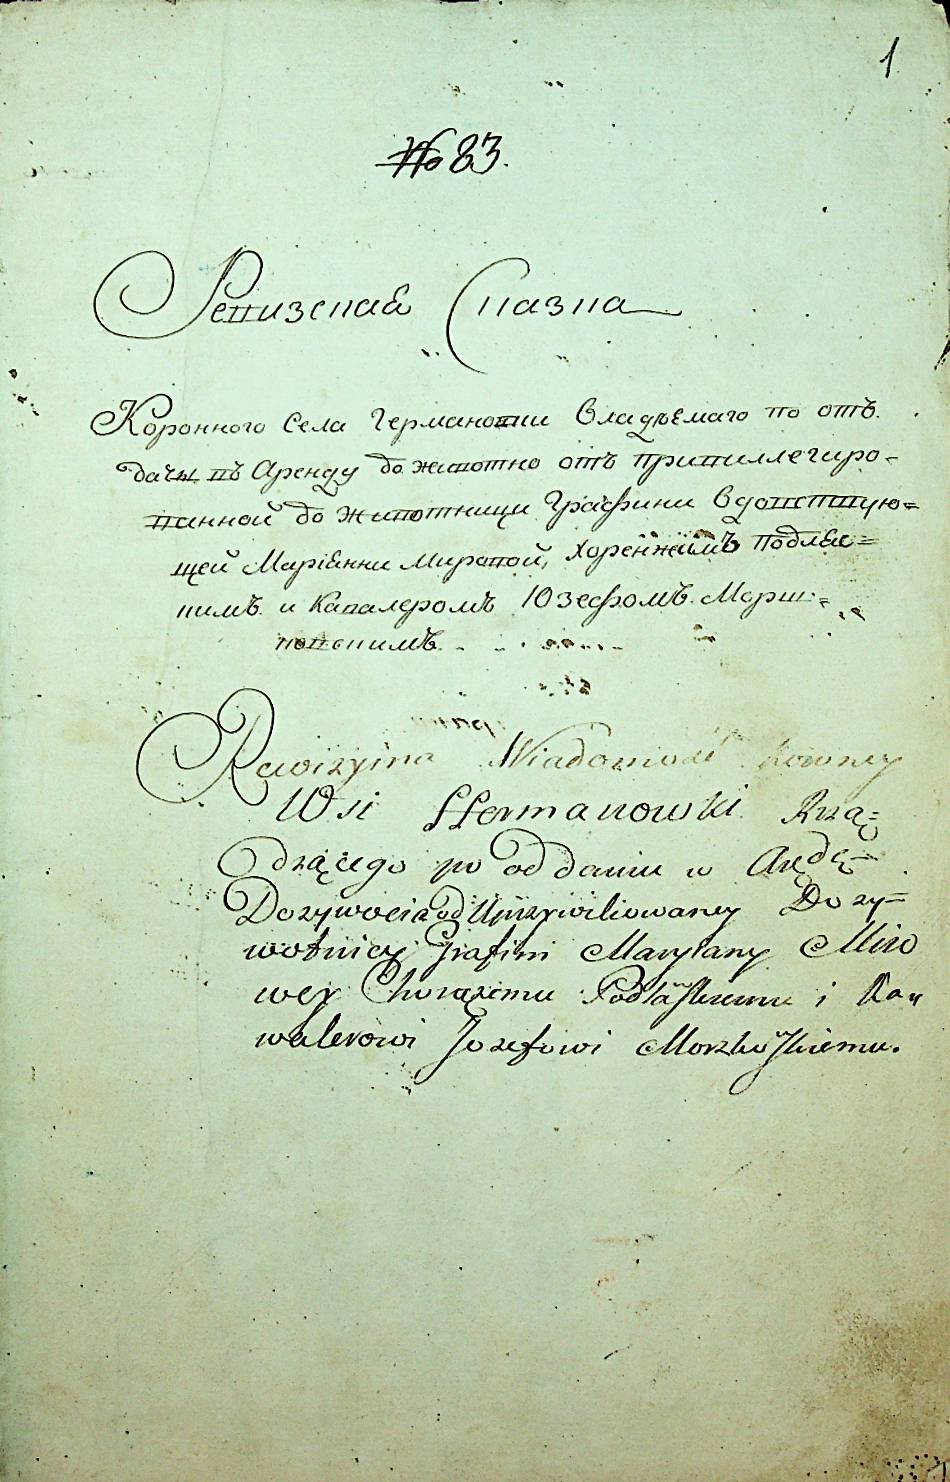 1
№ 83.
Ревизская Сказка
Коронного Села Германовки Владѣемаго по отъ
дачы въ Аренду до животно отъ привиллегиро-
ванной до животницы Графини Вдовствую=
щей Маріѣнны Мировой, Хоренжимъ Подляс=
кимъ и Кавалеромъ Юзефомъ Морш=
ковскимъ
Rewizyina Wiadomość
Wsi Hermanowki Rzą=
dzącego po oddaniu w Arędę
Dozywocia od Uprzywiliowaney Dozy=
wotnicy Grafini Maryiany Miro
wey Chorązemu Podlaskiemu i Ka„
walerowi Jozefowi Morzkoskiemu.